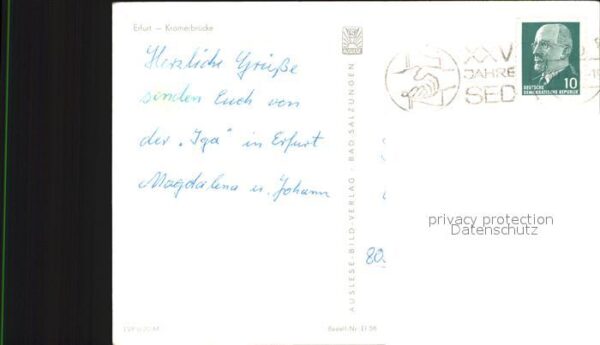 Erfurt — Krämerbrücke
Herzliche Grüße
senden Euch von
der „Iga" in Erfurt
Magdalena u. Johann
AUSLESE-BILD-VERLAG · BAD SALZUNGEN
XXV
JAHRE
SED
10
DEUTSCHE
DEMOKRATISCHE REPUBLIK
80
privacy protection
Datenschutz
Bestell-Nr.